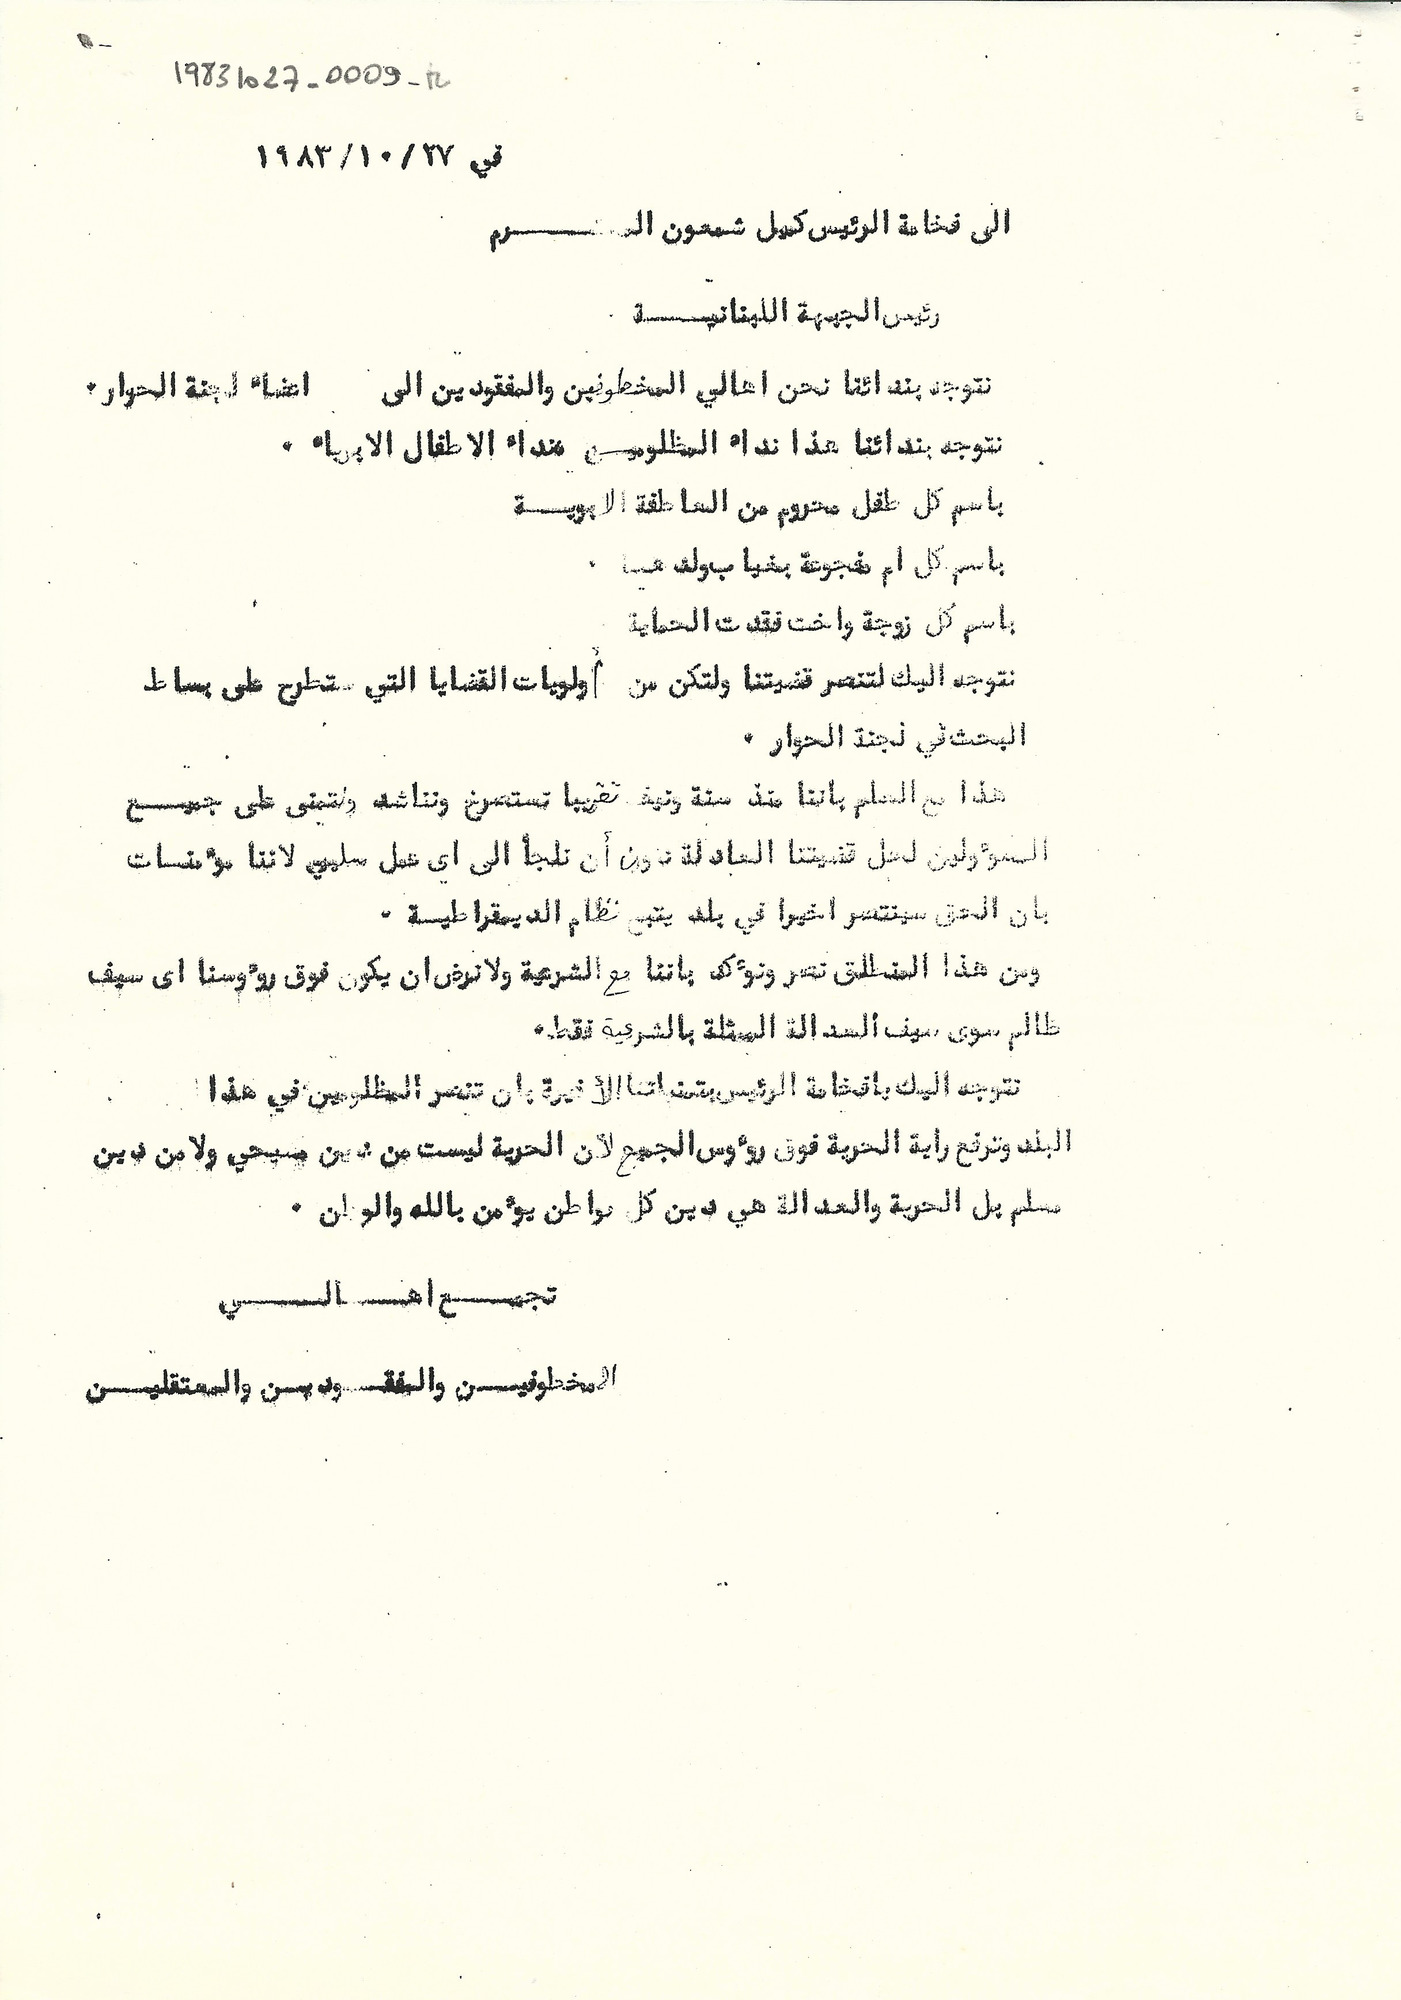 19831027-0009-
في ٢٧/١٠/١٩٨٣
الى فخامة الرئيس كميل شمعون المحتـــــرم
رئيس الجبهة اللبنانيـــــة
نتوجه بندائنا نحن اهالي المخطوفين والمفقودين الى اعضاء لجنة الحوار .
نتوجه بندائنا هذا نداء المظلوميـن ، نداء الاطفال الابرياء .
باسم كل طفل محروم من العاطفة الابويـــة
باسم كل ام مفجوعة بغياب ولدهـا .
باسم كل زوجة واخت فقدت الحماية
نتوجه اليك لتنصر قضيتنا ولتكن من أولويات القضايا التي ستطرح على بساط
البحث في لجنة الحوار .
هذا مع العلم باننا منذ سنة ونيف تقريبا نستصرخ ونناشد ونتمنى على جميـــع
المسؤولين لحل قضيتنا العادلة دون أن نلجأ الى اى عمل سلبي لاننا مؤمنات
بان الحق سينتصر اخيرا في بلد يتبع نظام الديمقراطيـة .
ومن هذا المنطلق نصر ونؤكد باننا مع الشرعية ولا نرض ان يكون فوق رؤوسنا اى سيف
ظالم سوى سيف العدالة الممثلة بالشرعية فقط .
نتوجه اليك يافخامة الرئيس بتمنياتنا الأخيرة بان تنصر المظلومين في هذا
البلد وترفع راية الحرية فوق رؤوس الجميع لأن الحرية ليست من دين مسيحي ولا من دين
مسلم بل الحرية والعدالة هي دين كل مواطن يؤمن بالله والوطن .
تجمـــــع اهـــالـــــي
المخطوفيــن والمفقـــوديــن والمعتقليـــن